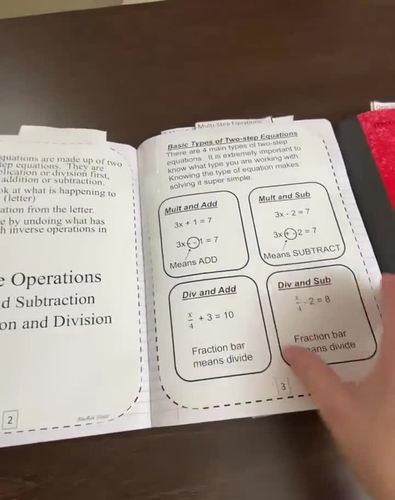 quations are made up of two
ep equations. They are
plication or division first,
addition or subtraction.
ok at what is happening to
(letter)
ation from the letter.
e by undoing what has
h inverse operations in
e Operations
d Subtraction
on and Division
2
Multi-Step Equations
Basic Types of Two-step Equations
There are 4 main types of two-step
equations. It is extremely important to
know what type you are working with.
Knowing the type of equation makes
solving it super simple.
Mult and Add
3x + 1 = 7
3x - 1 = 7
Means ADD
Mult and Sub
3x - 2 = 7
3x + 2 = 7
Means SUBTRACT
Div and Add
x/4 + 3 = 10
Fraction bar
means divide
Div and Sub
x/4 - 2 = 8
Fraction bar
ans divide
3